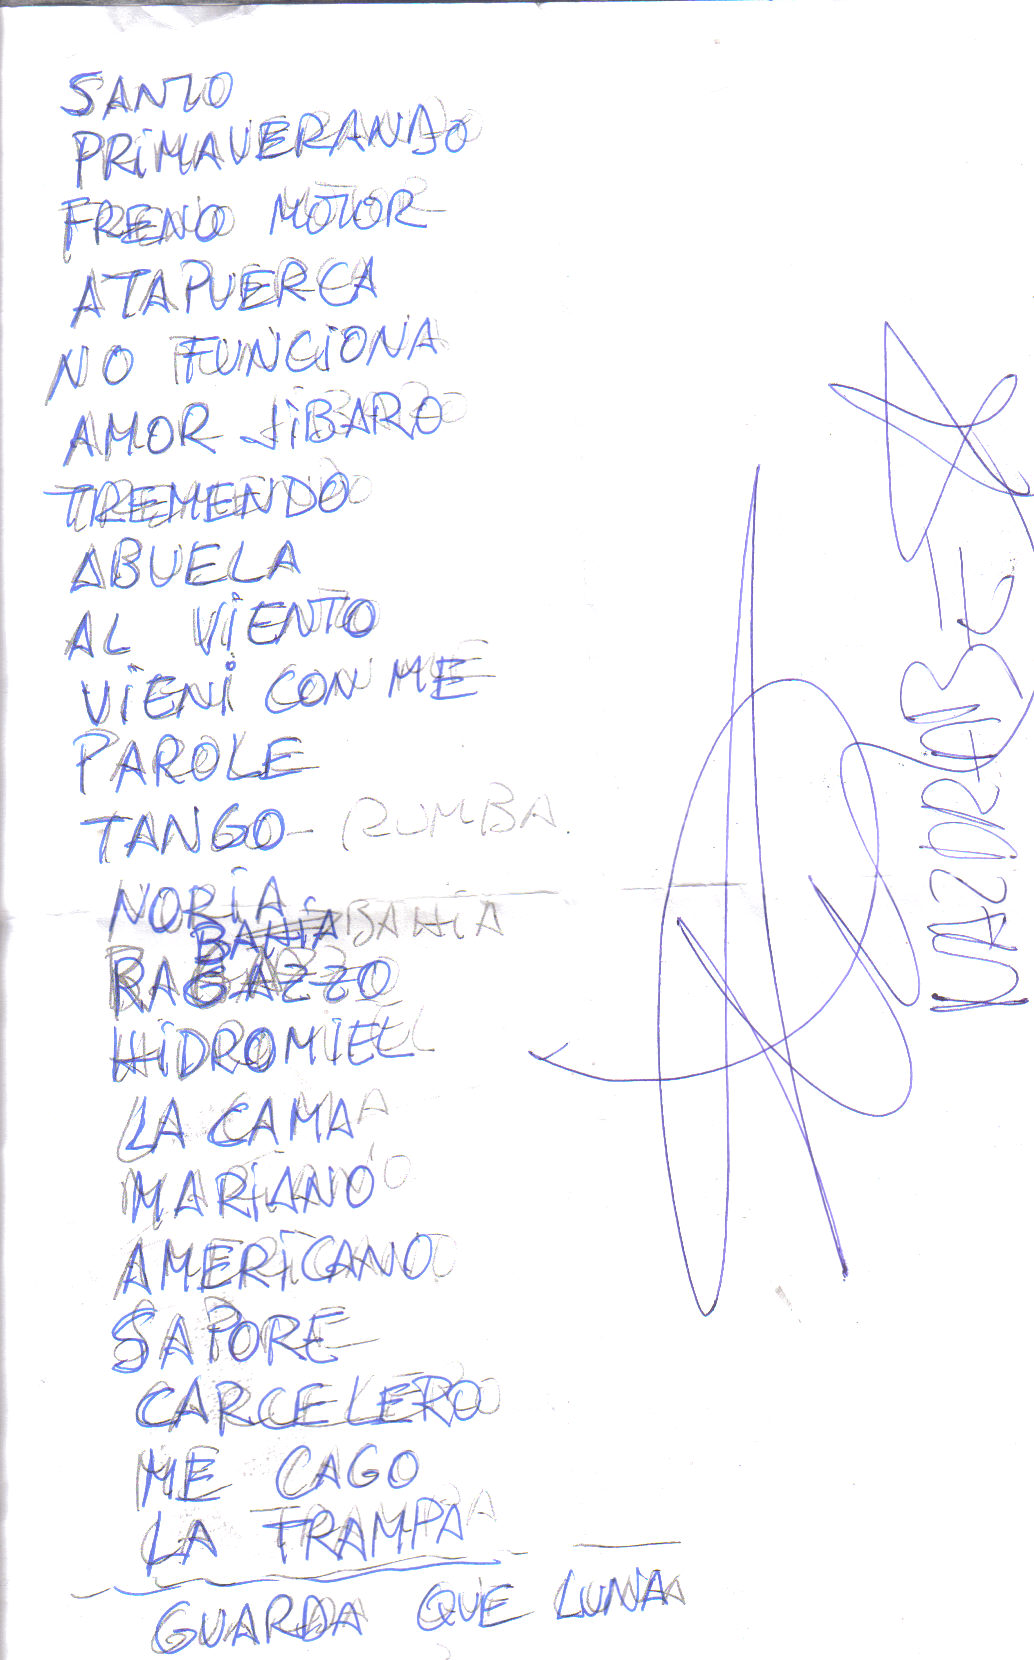 SANTO
PRIMAVERANDO
FRENO MOTOR
ATAPUERCA
NO FUNCIONA
AMOR JIBARO
TREMENDO
ABUELA
AL VIENTO
VIENI CON ME
PAROLE
TANGO - RUMBA.
NORIA
BAHIA BAHIA
RAGAZZO
HIDROMIEL
LA CAMA
MARIANO
AMERICANO
SAPORE
CARCELERO
ME CAGO
LA TRAMPA
GUARDA QUE LUNA